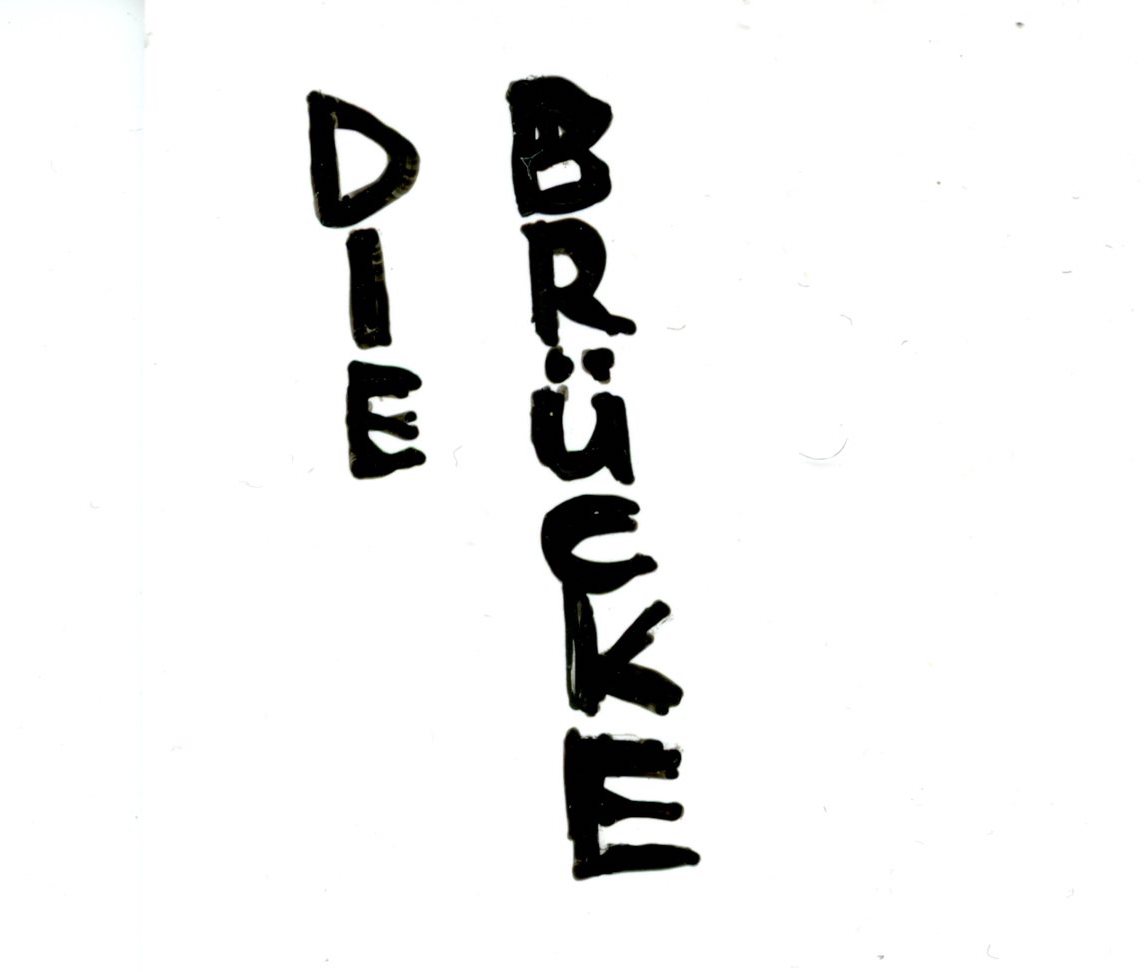 DIE
BRÜCKE